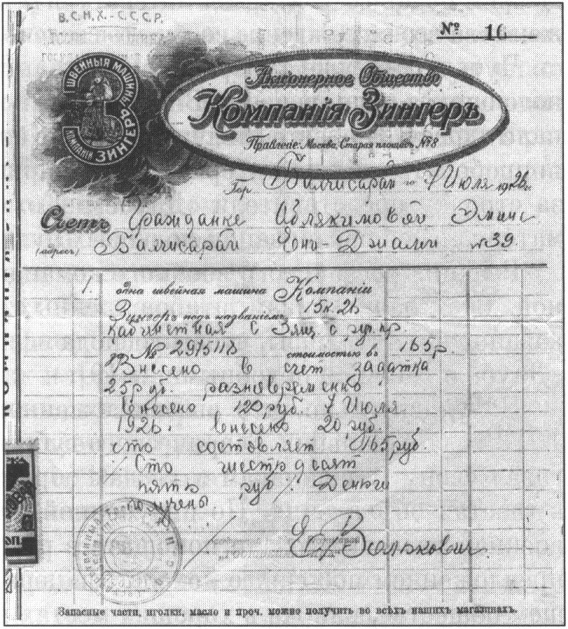 В.С.Н.Х. - С.С.С.Р.
№ 16
ШВЕЙНЫЯ МАШИНЫ
КОМПАНІИ ЗИНГЕРЪ
Акціонерное Общество
Компанія Зингеръ
Правленіе: Москва, Старая площадь, № 8
Гор. Бахчисарай 7 Июля 1926
Счетъ Гражданке Аблякимовой Эмине
(адресъ) Бахчисарай Ени-Джами № 39
1. одна швейная машина Компаніи
Зингеръ подъ названіемъ 15к.26
кабинетная с 3 ящ с
за № стоимостью въ 165р
Внесено в счет задатка
25 руб. разновременно
внесено 120 руб. 7 Июля
1926г. внесено 20 руб.
что составляет 165 руб.
/Сто шестьдесят
пять руб/. Деньги
получены
Запасныя части, иголки, масло и проч. можно получить во всѣхъ нашихъ магазинахъ.